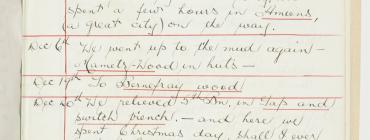 spent a few hours in Amiens,
(a great city) on the way.
Dec 6th We went up to the mud again -
Mametz-Wood in huts -
Dec 19th To Bernafray wood
Dec 20th We relieved 5th Bn. in Gap and
switch trench. - and here we
spent Christmas day, shall I ever